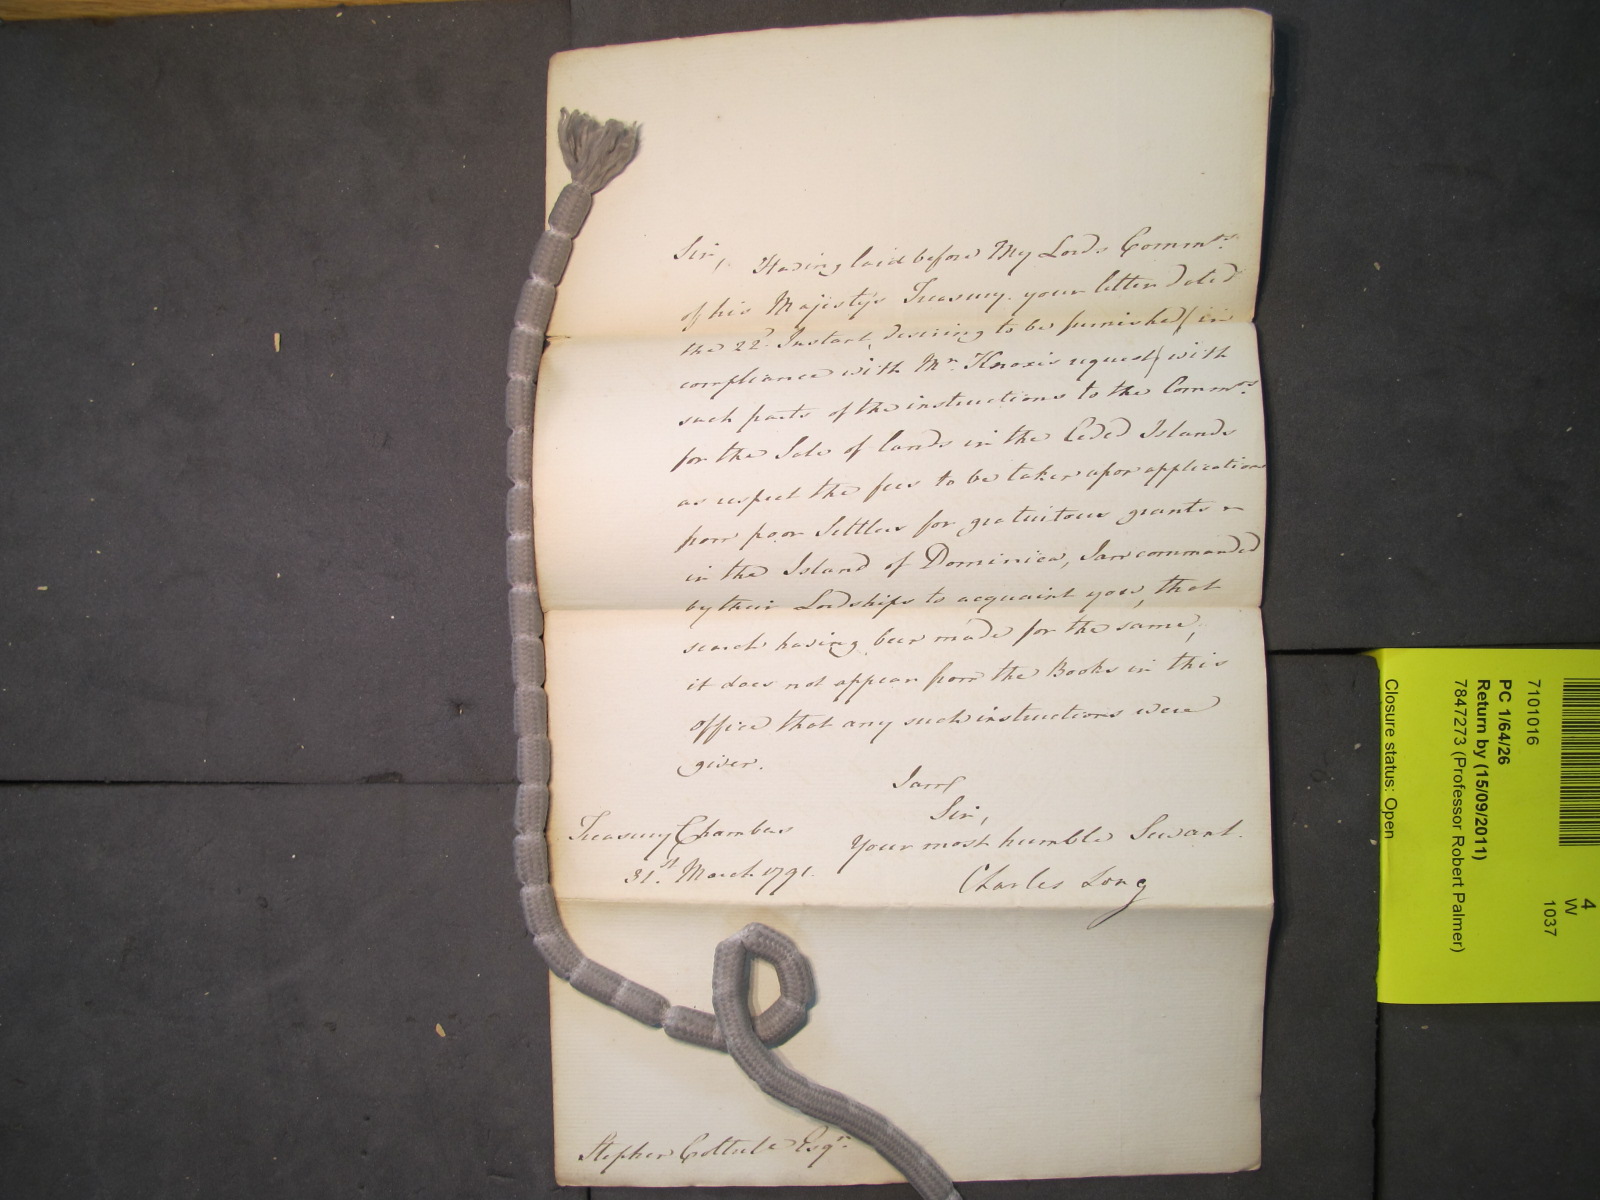 Sir, Having laid before My Lords Comm.rs
of his Majesty's Treasury your letter dated
the 22.d Instant, desiring to be furnished (in
compliance with Mr. Knox's request) with
such parts of the instructions to the Comm.rs
for the Sale of lands in the Ceded Islands
as respect the fees to be taken upon application
from poor Settlers for gratuitous grants
in the Island of Dominica, I am commanded
by their Lordships to acquaint you, that
search having been made for the same,
it does not appear from the Books in this
office that any such instructions were
given.
I am
Sir,
Your most humble Servant.
Charles Long
Treasury Chambers
31.st March 1791.
Stephen Cottrell Esq.r
4
W
1037
7101016
PC 1/64/26
Return by (15/09/2011)
7847273 (Professor Robert Palmer)
Closure status: Open